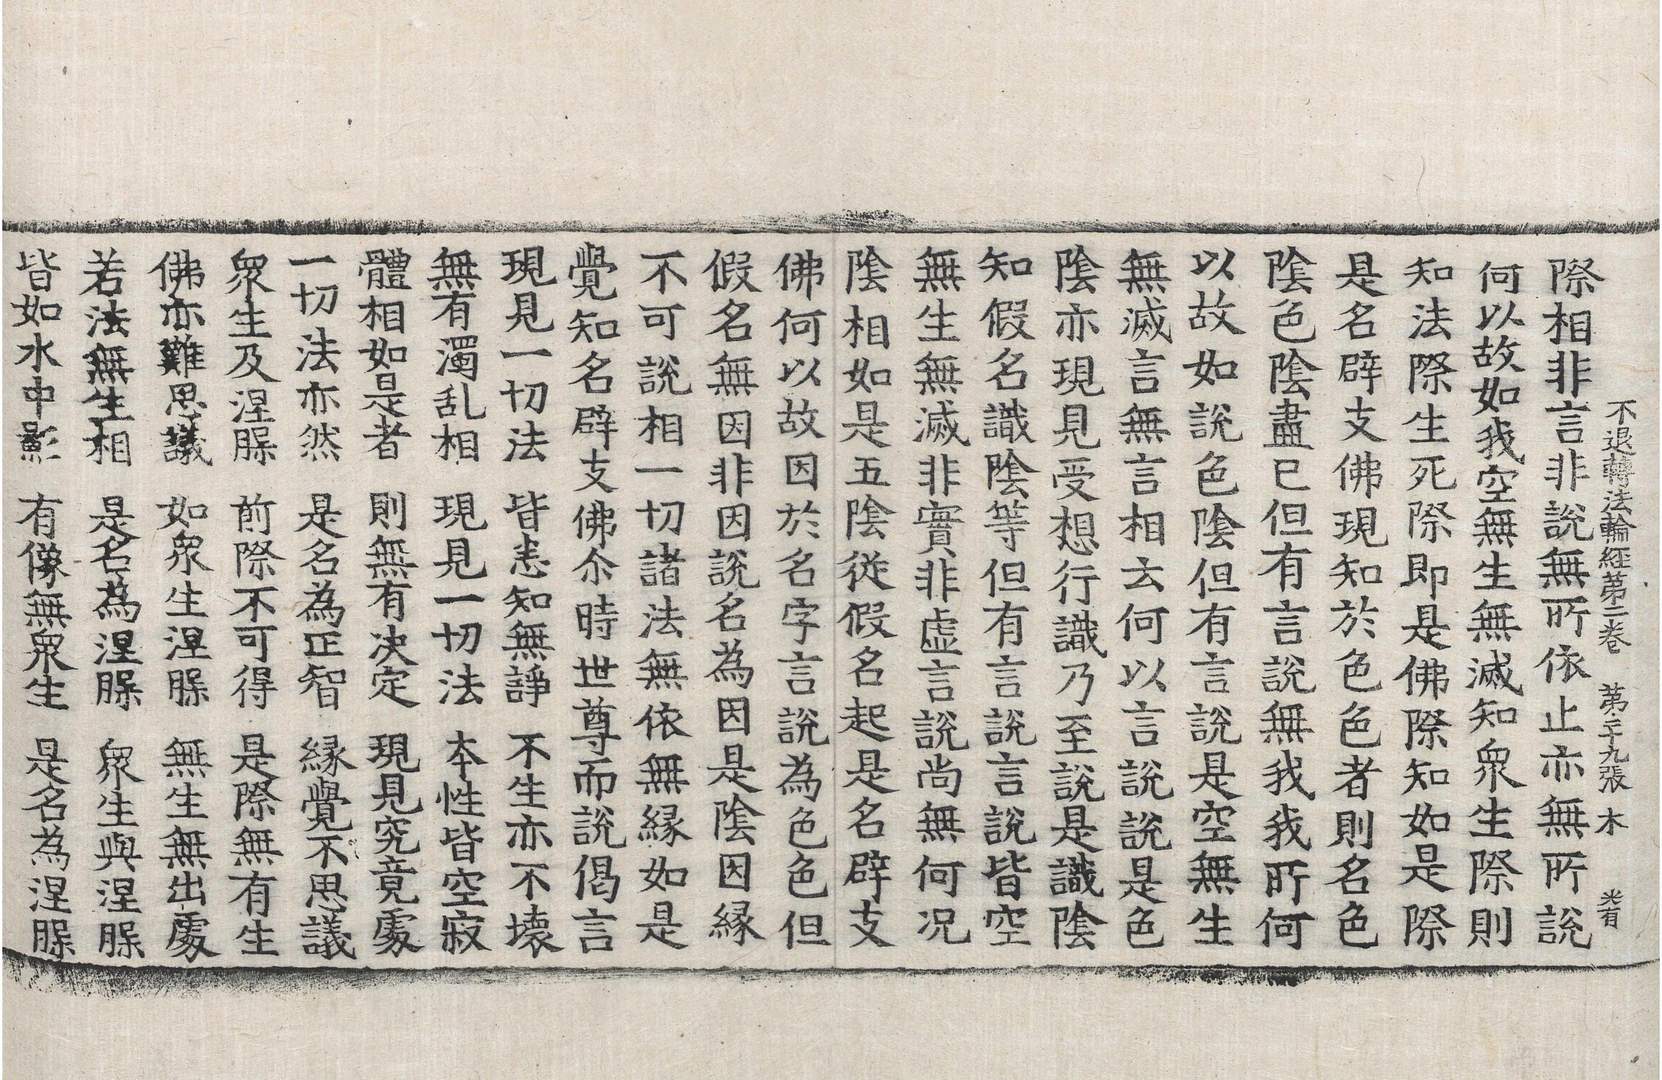 不退轉法輪經第二卷 第二十九張 木 光有
際相非言非說無所依止亦無所說
何以故如我空無生無滅知衆生際則
知法際生死際即是佛際知如是際
是名辟支佛現知於色色者則名色
陰色陰盡已但有言說無我我所何
以故如說色陰但有言說是空無生
無滅言無言相云何以言說說是色
陰亦現見受想行識乃至說是識陰
知假名識陰等但有言說言說皆空
無生無滅非實非虛言說尚無何況
陰相如是五陰從假名起是名辟支
佛何以故因於名字言說為色色但
假名無因非因說名為因是陰因緣
不可說相一切諸法無依無緣如是
覺知名辟支佛尒時世尊而說偈言
現見一切法 皆悉知無諍 不生亦不壞
無有濁乱相 現見一切法 本性皆空寂
體相如是者 則無有决定 現見究竟處
一切法亦然 是名為正智 緣覺不思議
衆生及涅槃 前際不可得 是際無有生
佛亦難思議 如衆生涅槃 無生無出處
若法無生相 是名為涅槃 衆生與涅槃
皆如水中影 有像無衆生 是名為涅槃